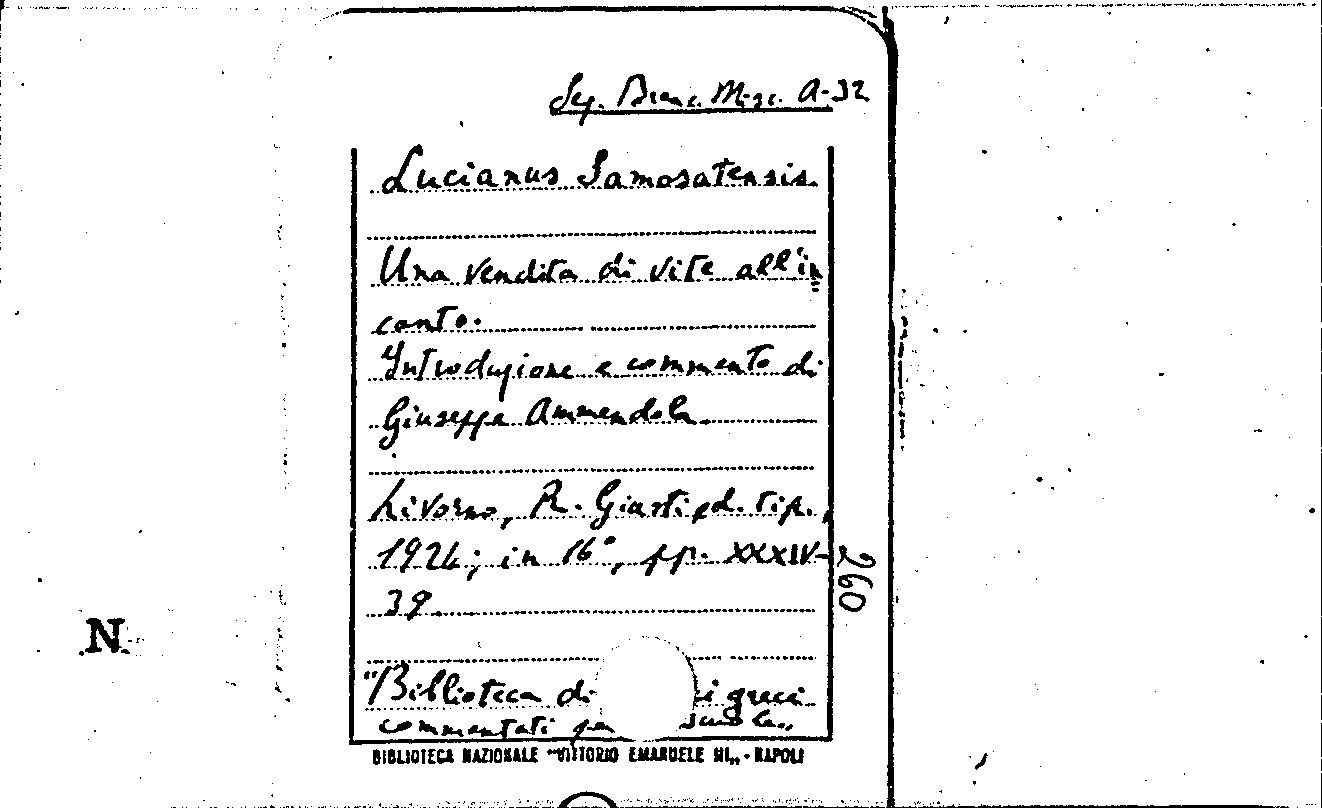 Sez. Branc. Misc. A-32
Lucianus Samosatensis.
Una vendita di vite all'in
canto.
Introduzione e commento di
Giuseppe Ammendola
Livorno, R. Giusti ed. tip.,
1924; in 16°, pp. XXXIV-
39.
260
"Biblioteca di i greci
commentati
N
BIBLIOTECA NAZIONALE "VITTORIO EMANUELE III„ - NAPOLI